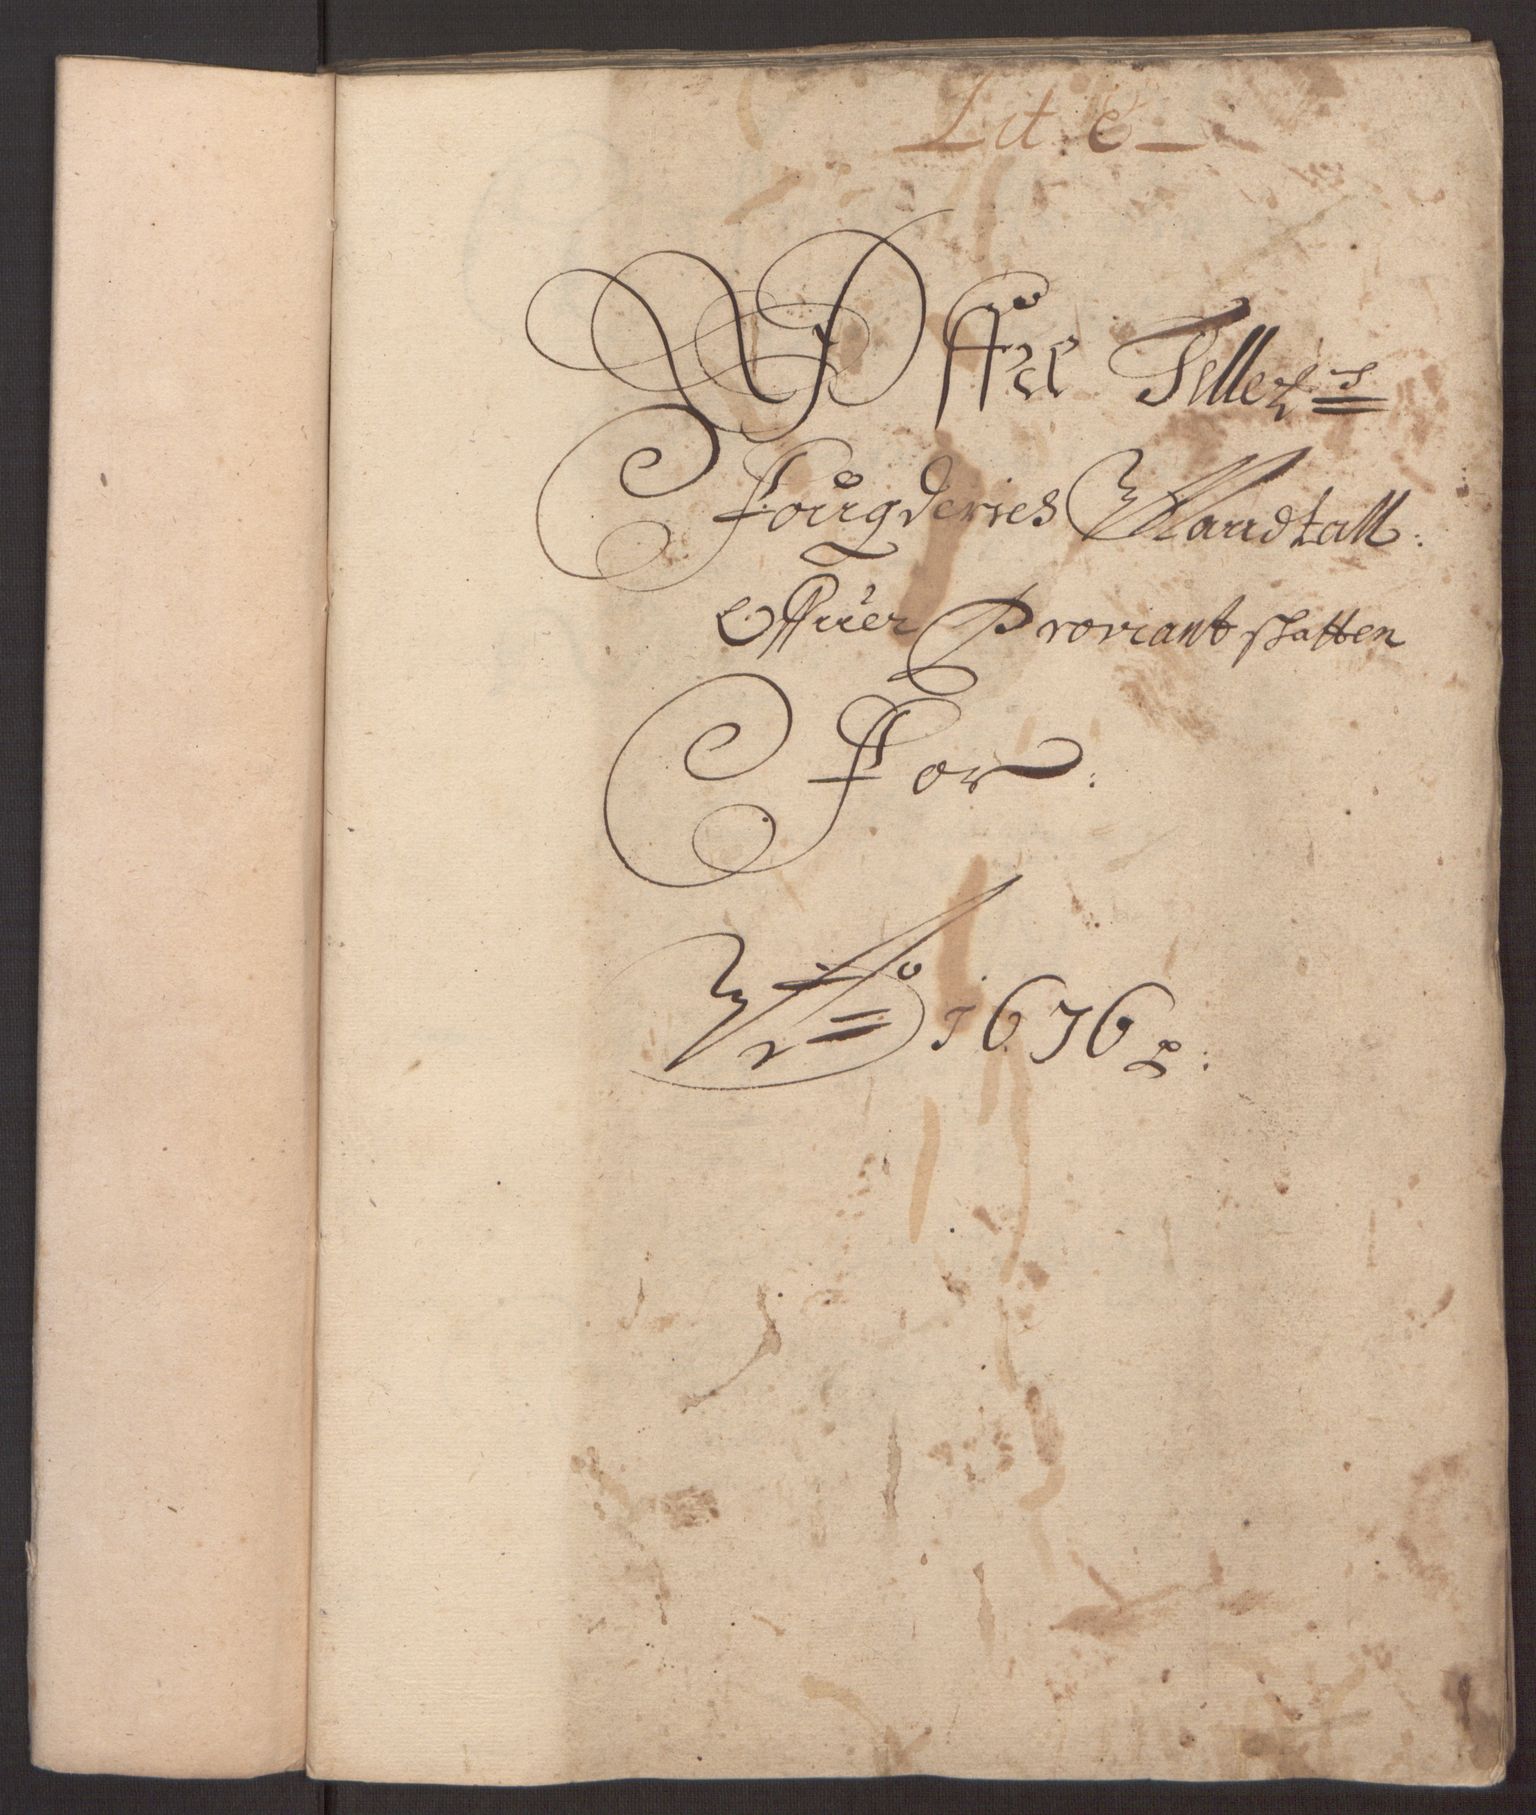 Lit C
Øffre Telle-
Fougderies Mandtall:
Offuer Proviant skatten
For:
Ao 1676